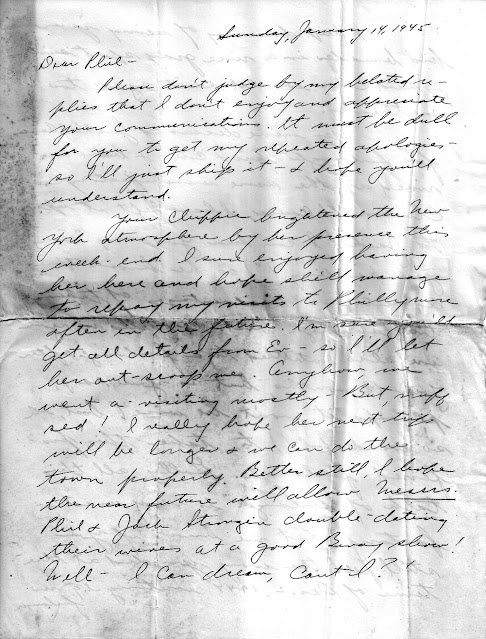 Sunday, January 14, 1945
Dear Phil -
Please don't judge by my belated re-
plies that I don't enjoy and appreciate
your communications. It must be dull
for you to get my repeated apologies -
so I'll just skip it - & hope you'll
understand.
Your Chippie brightened the New
York atmosphere by her presence this
week-end. I sure enjoyed having
her here and hope she'll manage
to repay my visits to Philly more
often in the future. I'm sure you'll
get all details from Ev - so I'll let
her out-scoop me. Anyhow, we
went a-visiting mostly - But, nuff
sed! I really hope her next trip
will be longer & we can do the
town properly. Better still, I hope
the near future will allow Messrs.
Phil & Jack Strongin double-dating
their wives at a good Bway show!
Well - I can dream, can't I?!